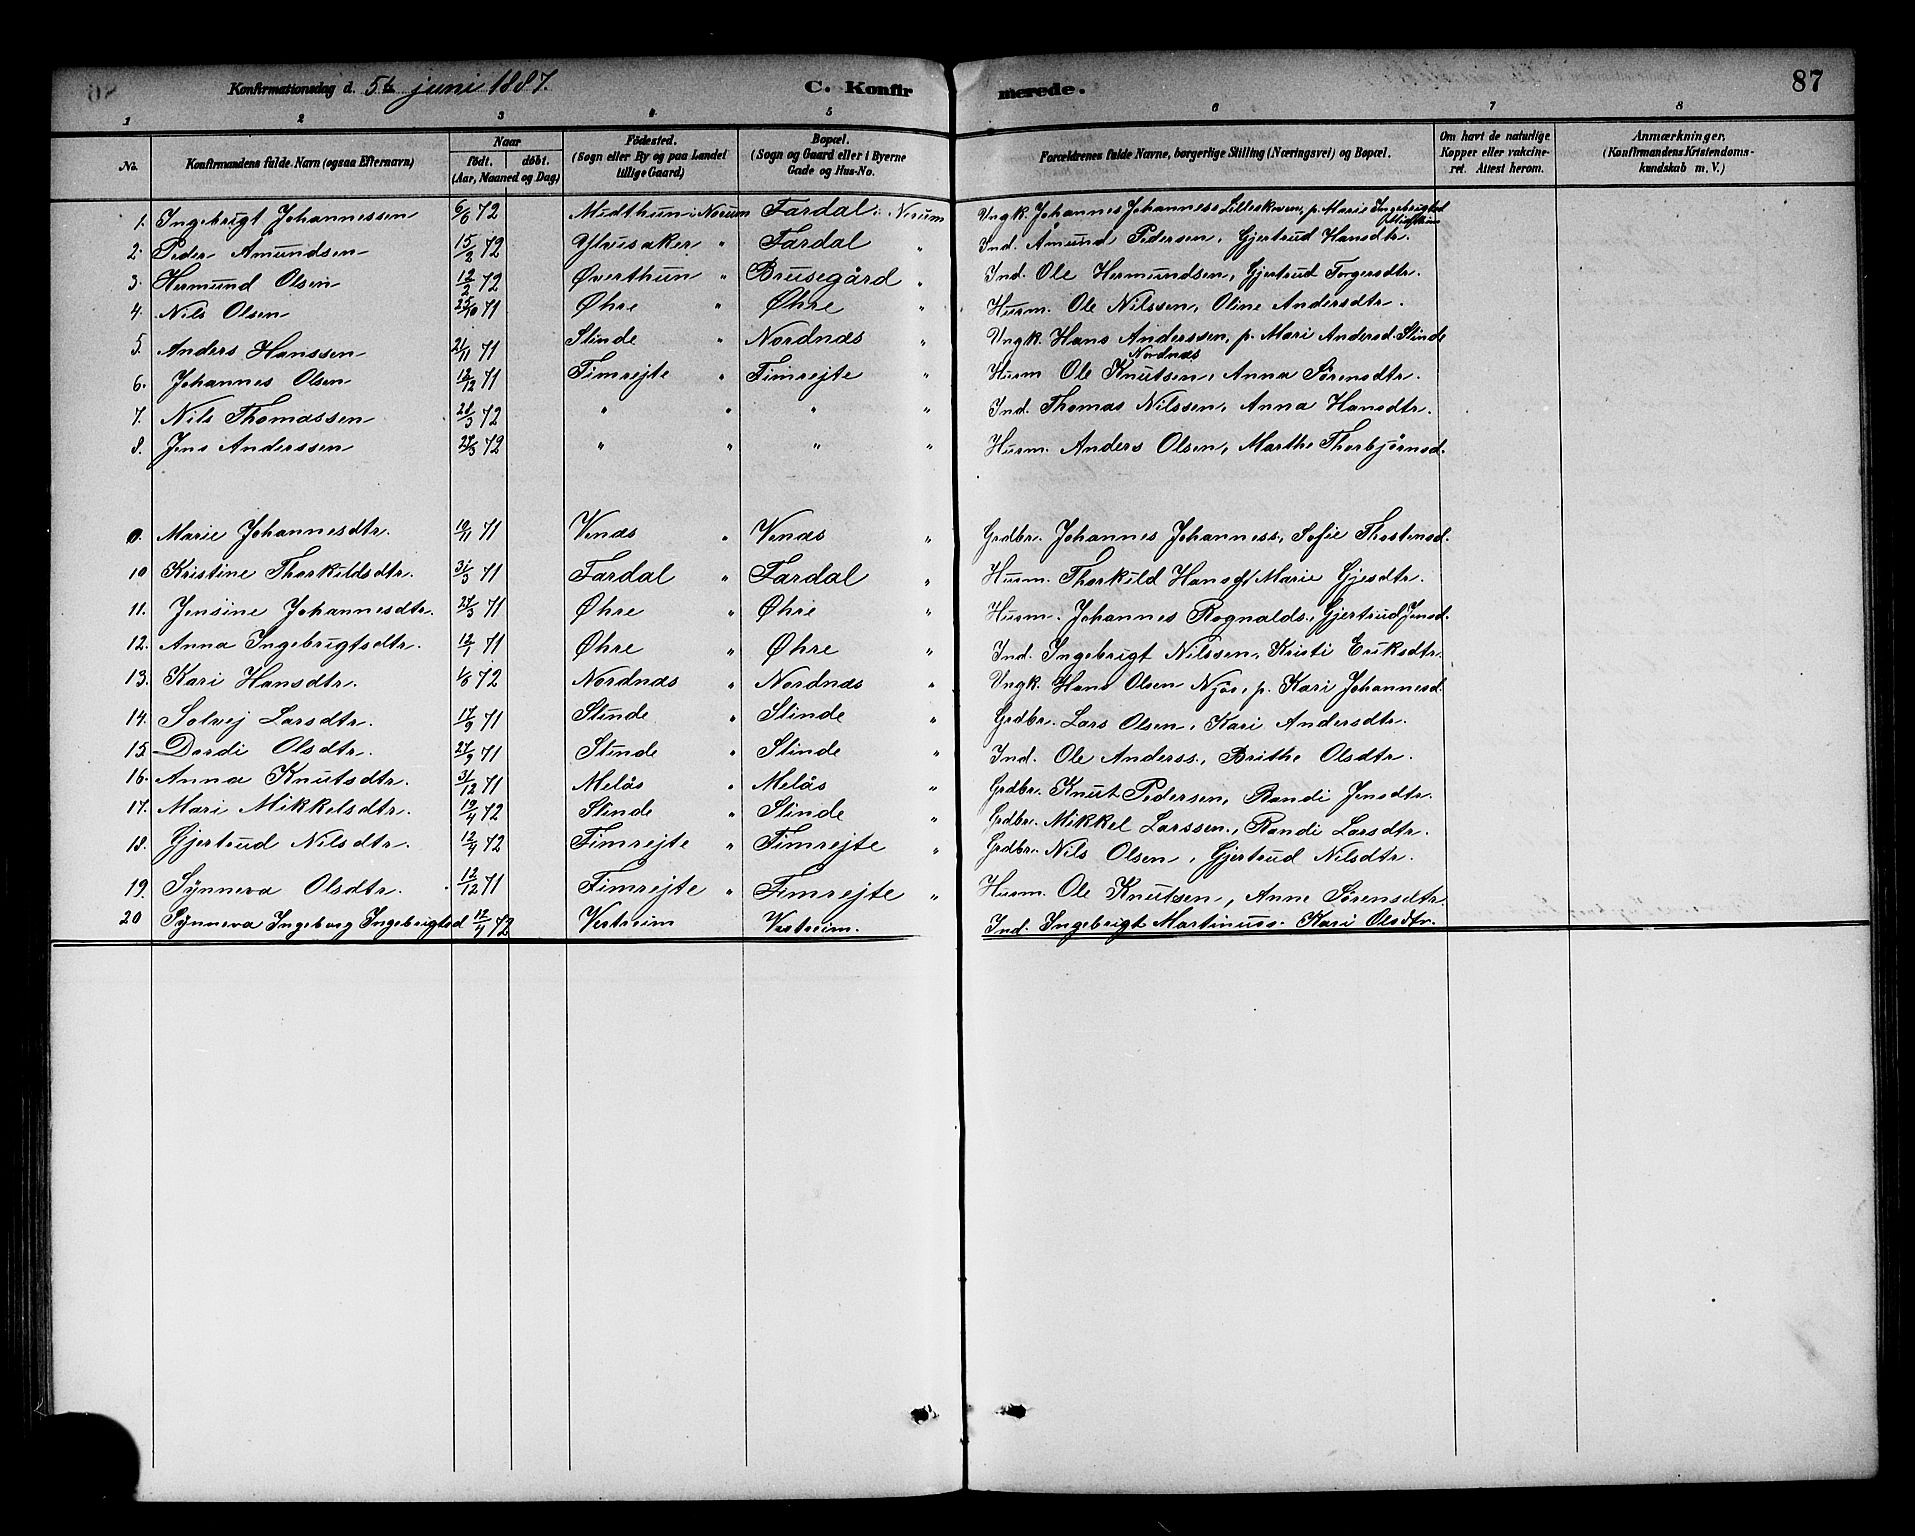 Konfirmationsdag d. 5te juni 1887. C. Konfir merede. 87
1 2 3 4 5 6 7 8
No. Konfirmandens fulde Navn (ogsaa Efternavn) Naar født. døbt. (Aar, Maaned og Dag) Fødested. (Sogn eller By og paa Landet tillige Gaard) Bopæl. (Sogn og Gaard eller i Byerne Gade og Hus-No. Forældrenes fulde Navne, borgerlige Stilling (Næringsvei) og Bopæl. Om havt de naturlige Kopper eller vakcineret. Attest herom. Anmærkninger. (Konfirmandens Kristendomskundskab m. V.)
1. Ingebrigt Johannessen 6/6 72 Midthun i Norum Fardal i Norum Ungk. Johannes Johanness Lilleskaren, p. Marie Ingebrigtsd Midthun
2. Peder Amundsen 15/2 72 Ylvisaker " Fardal " Ind. Åmund Pedersen, Gjertrud Hansdtr.
3. Hermund Olsen 12/2 72 Øverthun " Brusegård " Ind. Ole Hermundsen, Gjertrud Torgersdtr.
4. Nils Olsen 25/10 71 Øhre " Øhre " Husm. Ole Nilssen, Oline Andersdtr.
5. Anders Hanssen 21/11 71 Slinde " Nordnæs " Ungk. Hans Anderssen, p. Mari Andersd. Slinde
Nordnæs
6. Johannes Olsen 12/12 71 Fimrejte " Fimrejte " Husm Ole Knutsen, Anna Sørensdtr.
7. Nils Thomassen 28/3 72 " " " " Ind. Thomas Nilssen, Anna Hansdtr.
8. Jens Anderssen 27/3 72 " " " " Husm. Anders Olsen, Marthe Thorbjørnsd.
9. Marie Johannesdtr. 10/11 71 Venæs " Venæs " Grdbr. Johannes Johanness, Sofie Thostensd.
10 Kristine Thorkildsdtr. 31/3 71 Fardal " Fardal " Husm. Thorkild Hans Marie Gjesdtr.
11. Jensine Johannesdtr. 27/3 71 Øhre " Øhre " Husm. Johannes Rognalds., Gjertrud Jensd.
12. Anna Ingebrigtsdtr. 12/7 71 Øhre " Øhre " Ind. Ingebrigt Nilssen, Kristi Eriksdtr.
13. Kari Hansdtr. 1/6 72 Nordnæs " Nordnæs " Ungk. Hans Olsen Njøs, p. Kari Johannesd.
14. Solvej Larsdtr. 17/9 71 Slinde " Slinde " Grdbr. Lars Olsen, Kari Andersdtr.
15. Dordi Olsdtr. 27/9 71 Slinde " Slinde " Ind. Ole Anderss., Brithe Olsdtr.
16. Anna Knutsdtr. 31/12 71 Melås " Melås " Grdbr. Knut Pedersen, Randi Jensdtr.
17. Mari Mikkelsdtr. 19/4 72 Slinde " Slinde " Grdbr. Mikkel Larssen, Randi Larsdtr.
18. Gjertrud Nilsdtr. 12/4 72 Fimrejte " Fimrejte " Grdbr. Nils Olsen, Gjertrud Nilsdtr.
19. Synneva Olsdtr. 12/12 71 Fimrejte " Fimrejte " Husm. Ole Knutsen, Anne Sørensdtr.
20 Synneva Ingeborg Ingebrigtsd 12/1 72 Vestreim Vestreim. Ind. Ingebrigt Martinuss. Kari Olsdtr.